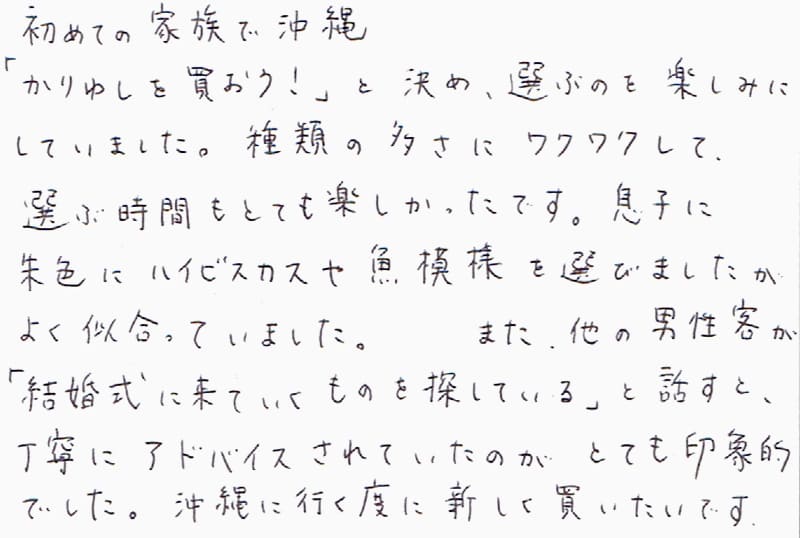 初めての家族で沖縄
「かりゆしを買おう!」と決め、選ぶのを楽しみに
していました。種類の多さにワクワクして、
選ぶ時間もとても楽しかったです。息子に
朱色にハイビスカスや魚模様を選びましたが
よく似合っていました。 また、他の男性客が
「結婚式に来ていくものを探している」と話すと、
丁寧にアドバイスされていたのがとても印象的
でした。沖縄に行く度に新しく買いたいです.